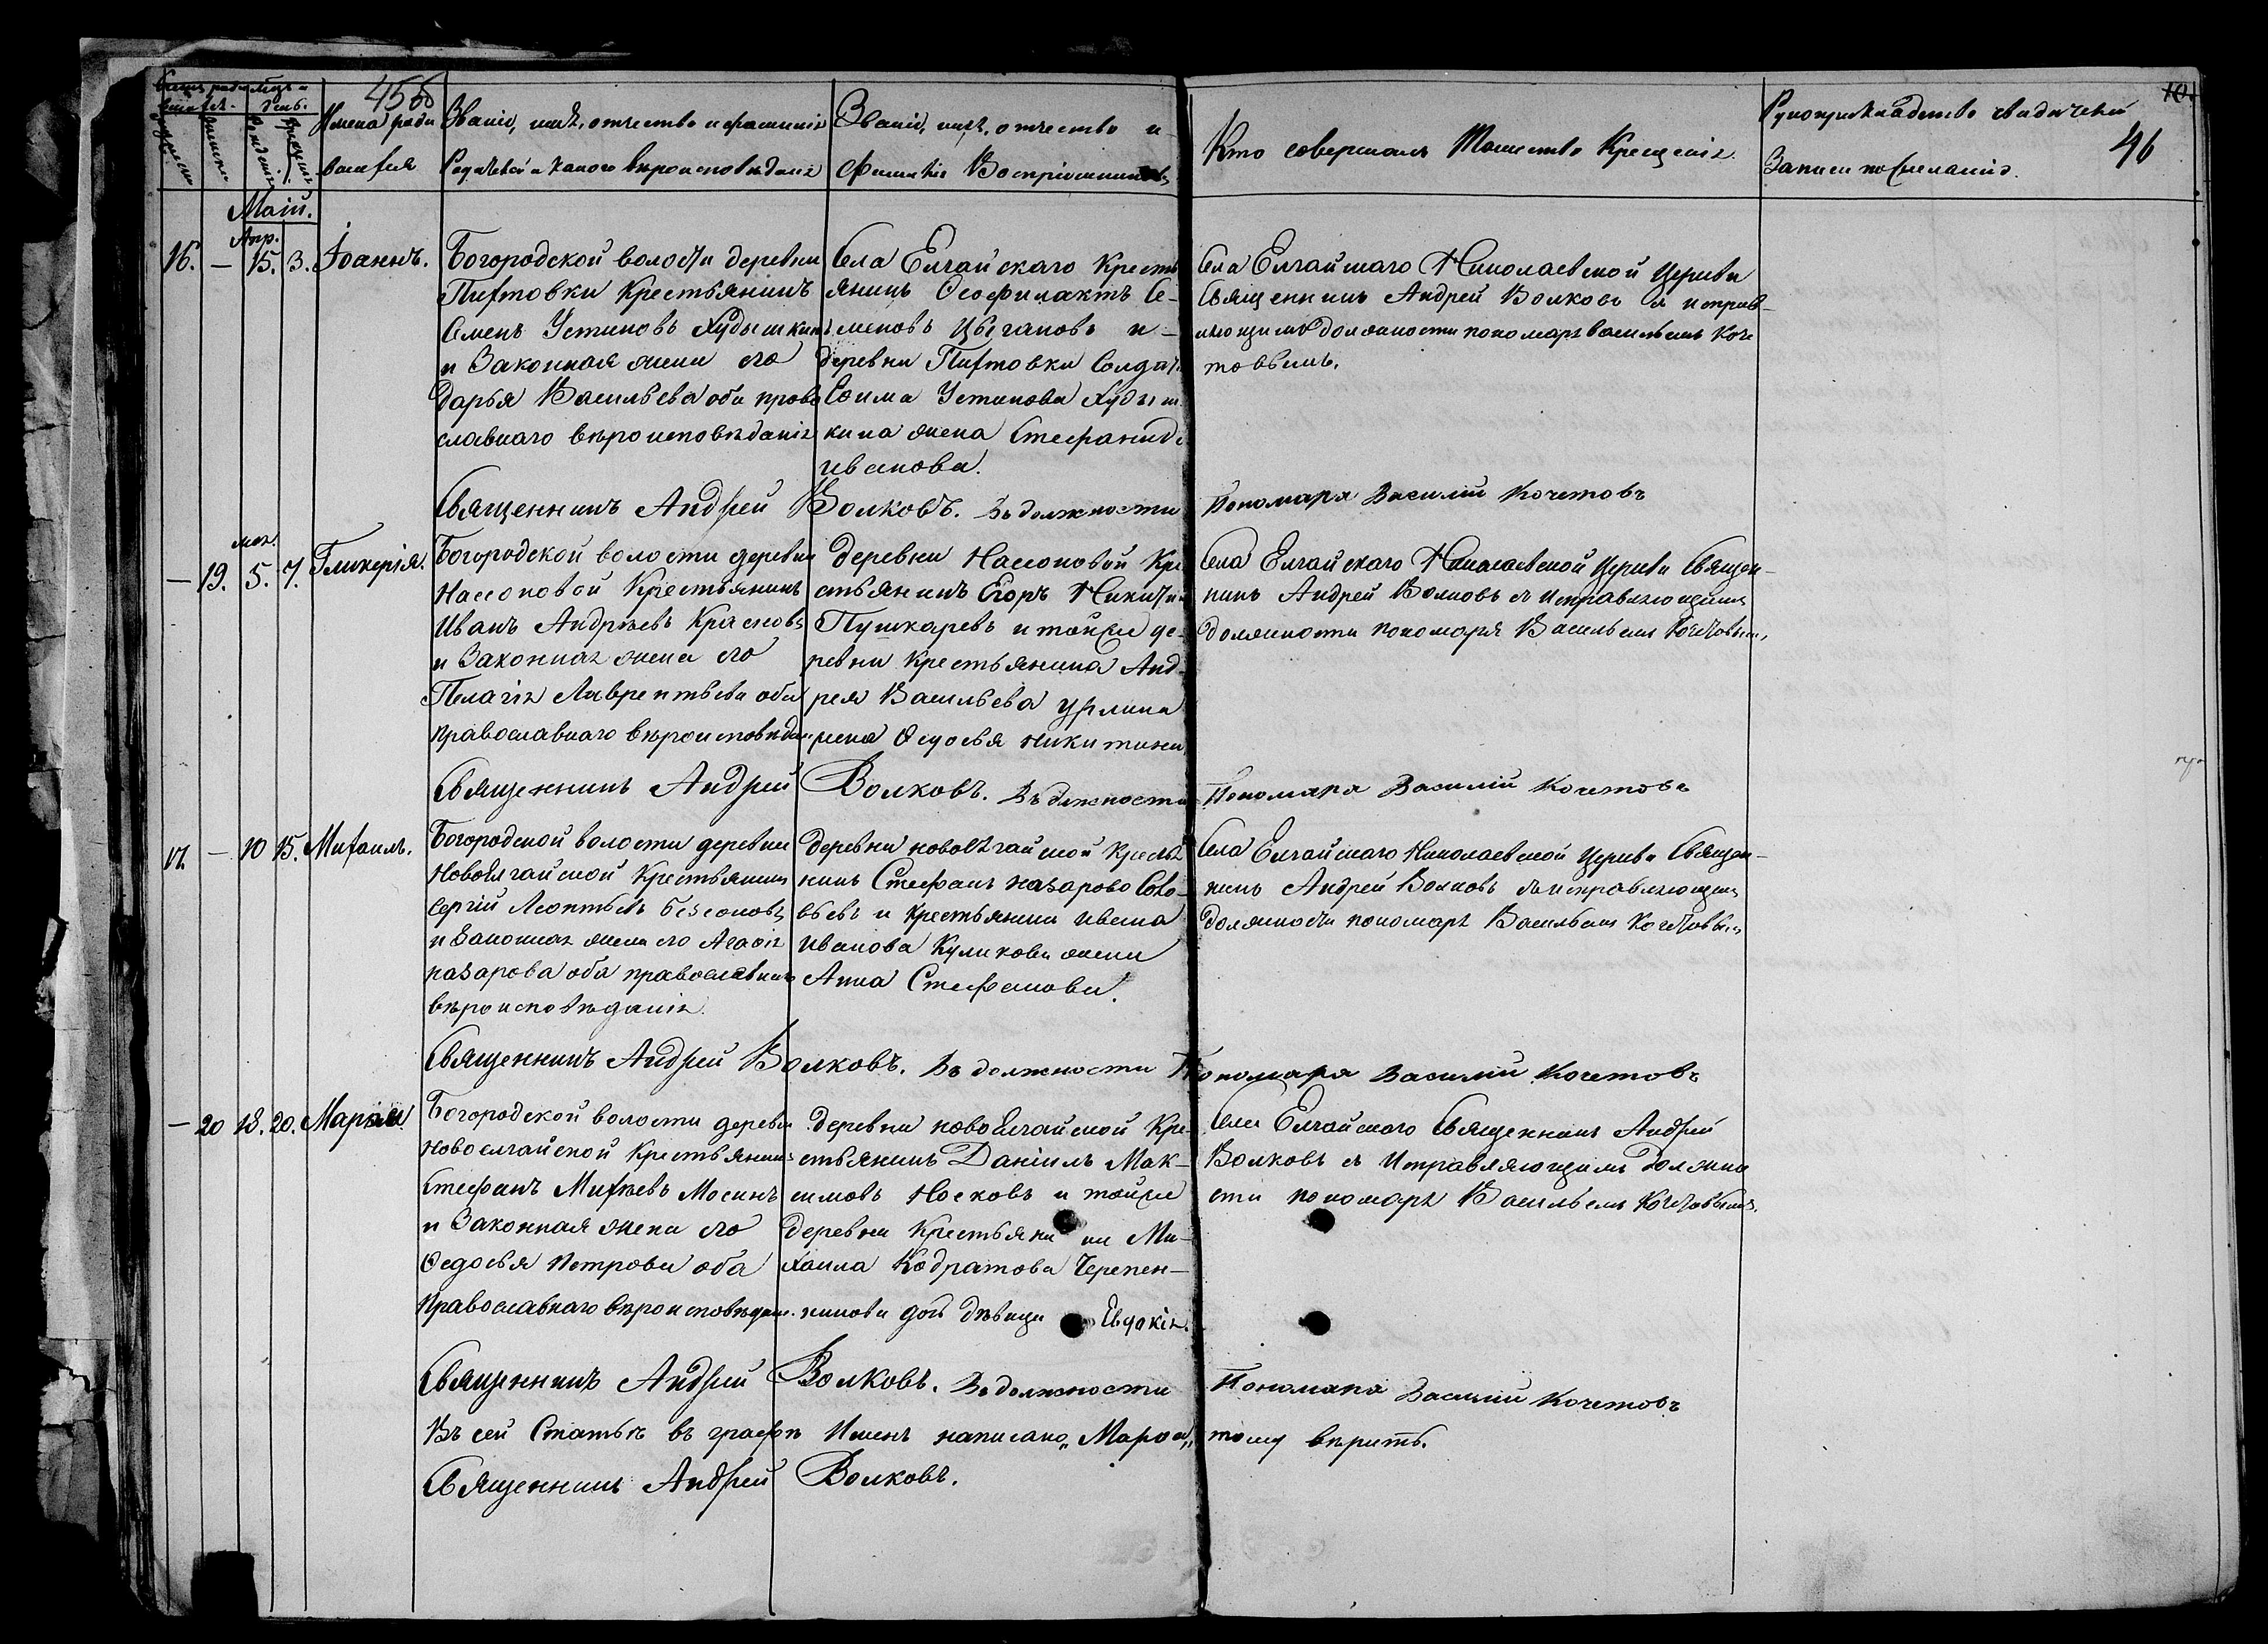 455
10.
46
Имена роди
вшихся
Званіе, имя, отчество и фамилія
Родителей и какого вѣроисповѣданія
Званіе, имя, отчество и
фамилія Воспріемниковъ
Кто совершалъ Таинство Крещенія.
Рукоприкладство свидѣтелей
Записи по желанію.
Маій.
Апр.
16. — 15. 3. Іоаннъ.
Богородской волости деревни
Пихтовки Крестьянинъ
Семенъ Устиновъ Худышкинъ
и Законная жена его
Дарья Васильева оба право
славнаго вѣроисповѣданія
Села Елгайскаго Кресть
янинъ Феофилактъ Се-
меновъ Цыгановъ и
деревни Пихтовки Солдат
Ефима Устинова Худыш
кина жена Стефанида
Иванова.
Села Елгайскаго Николаевской Церкви
Священникъ Андрей Волковъ съ исправ-
ляющимъ должности пономаря Васильемъ Коче
товымъ.
Священникъ Андрей Волковъ. Въ должности Пономаря Василій Кочетовъ
мая.
— 19. 5. 7. Гликерія.
Богородской волости деревни
Нассоновой Крестьянинъ
Иванъ Андреевъ Кряжовъ
и Законная жена его
Пелагія Лаврентьева оба
православнаго вѣроисповѣдан
Деревни Нассоновой Кре
стьянинъ Егоръ Никитин
Пушкаревъ и тойже де-
ревни Крестьянина Анд-
рея Васильева Урлина
жена Федосья Никитина
Села Елгайскаго Николаевской Церкви Священ-
никъ Андрей Волковъ съ исправляющимъ
должности пономаря Васильемъ Кочетовым,
Священникъ Андрей Волковъ. Въ должности Пономаря Василій Кочетовъ
17. — 10 15. Михаилъ.
Богородской волости деревни
Новоелгайской Крестьянинъ
Сергій Леонтьевъ Безсоновъ
и Законная жена его Агафія
Назарова оба православнаго
вѣроисповѣданія.
Деревни Новоелгайской Крестья
нинъ Стефанъ Назарово Соло-
вьевъ и Крестьянина Ивана
Иванова Куликова жена
Анна Стефанова.
Села Елгайскаго Николаевской Церкви Священ-
никъ Андрей Волковъ съ исправляющимъ
должности пономаря Васильемъ Кочетовым
Священникъ Андрей Волковъ. Въ должности Пономаря Василій Кочетовъ
— 20 18. 20.
Богородской волости деревни
Новоелгайской Крестьянинъ
Стефанъ Михѣевъ Мосинъ
и Законная жена его
Федосья Петрова оба
православнаго вѣроисповѣдан.
Деревни Новоелгайской Кре-
стьянинъ Даніилъ Мак-
симовъ Носковъ и тойже
деревни Крестьяни на Ми-
хаила Кодратова Черепен-
никова дочь дѣвица Евдокія.
Села Елгайскаго Священникъ Андрей
Волковъ съ Исправляющимъ должно
сти пономаря Васильемъ Кочетовымъ.
Священникъ Андрей Волковъ. Въ должности Пономаря Василій Кочетовъ
Въ сей Статьѣ въ графѣ Именъ написано „ тому вѣрить.
Священникъ Андрей Волковъ.